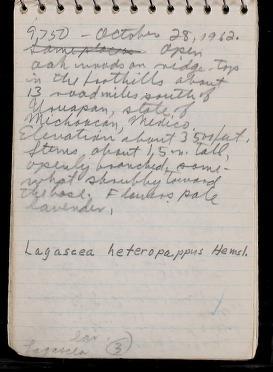 9,750 - October 28, 1962.
Same place Open
oak woods on ridge-tops
in the foothills about
13 road miles south of
Uruapan, state of
Michoacan, Mexico.
Elevation about 3500 feet.
Stems about 1.5 m. tall,
openly branched, some-
what shrubby toward
the base. Flowers pale
lavender.
Lagascea heteropappus Hemsl.
Lagascea 3